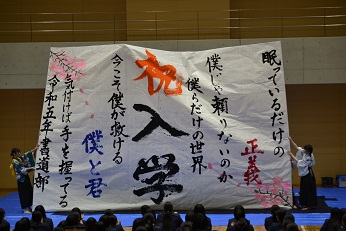 眠っているだけの
正義
僕しか頼りないのか
僕らだけの世界
祝
入学
今こそ僕が救ける
僕と君
気付けば手を握ってる
令和五年 書道部